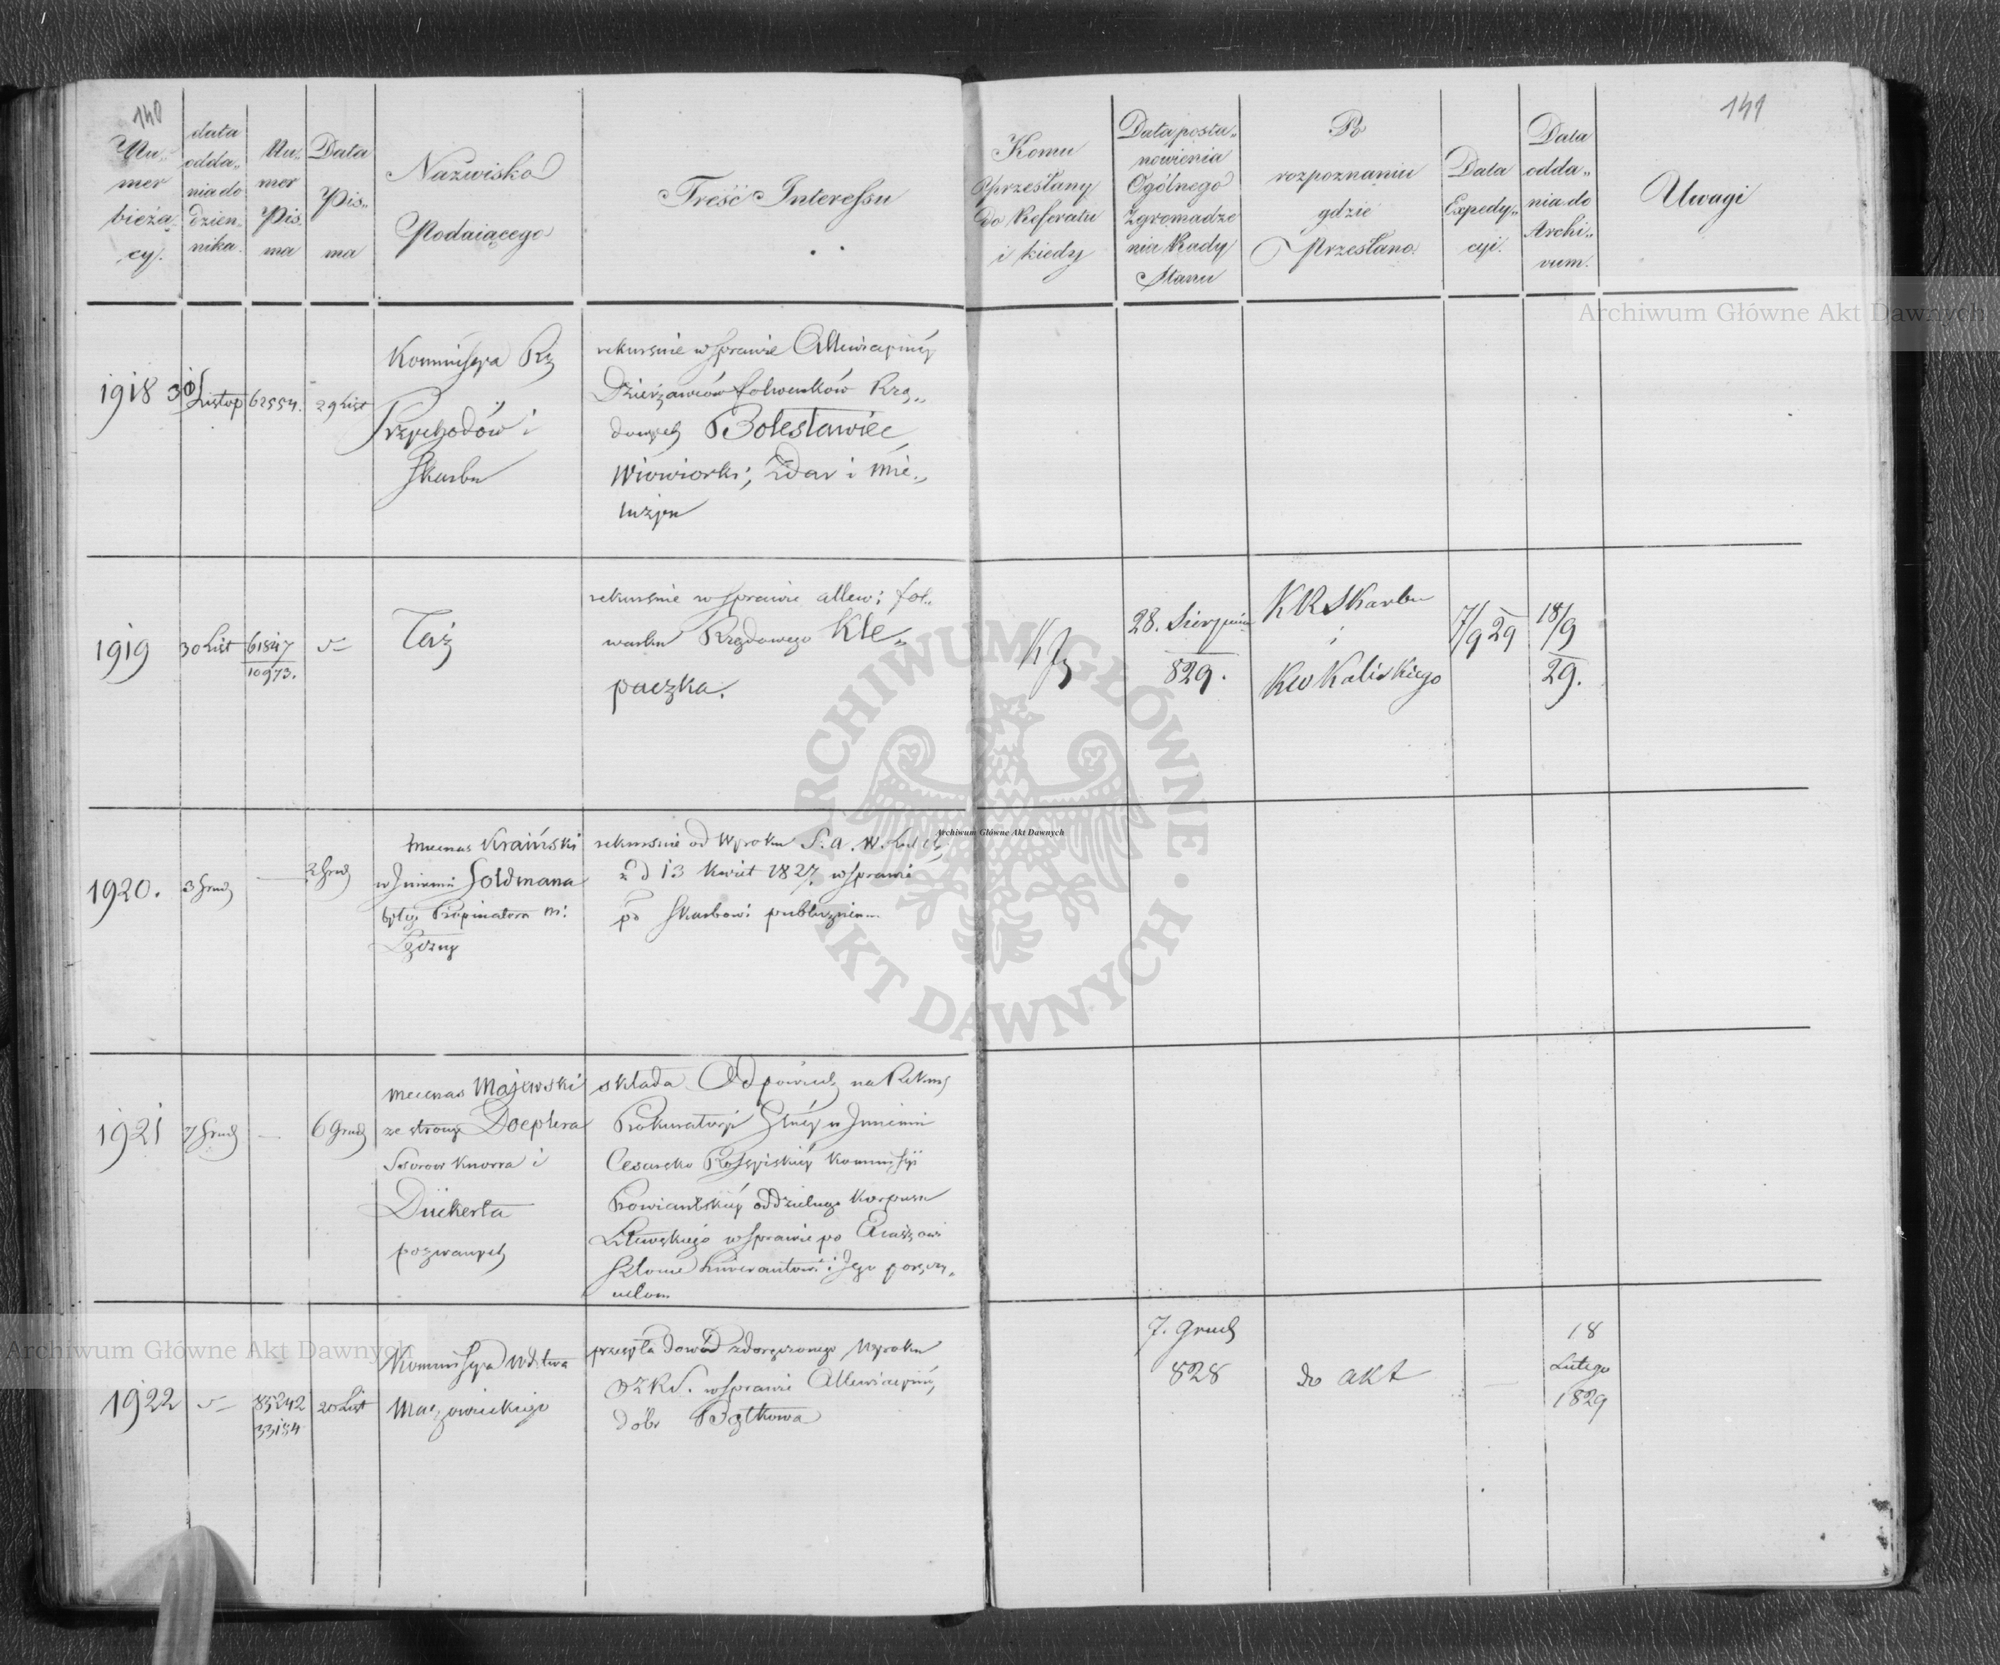 140
Nu„
mer
bieżą„
cy.
data
odda„
nia do
dzien„
nika.
Nu„
mer
Pis„
ma
Data
Pis„
ma
Nazwisko
Podaiącego
Treść Interessu
Komu
Przesłany
do Referatu
i kiedy
Data posta„
nowienia
Ogólnego
Zgromadze
nia Rady
Stanu
Po
rozpoznaniu
gdzie
Przesłano
Data
Expedy„
cyi.
Data
odda„
nia do
Archi„
vum.
Uwagi
141
1918
30 Listop
62554.
29 List
Kommissya Rz
Przychodów i
Skarbu
rekursuie w sprawie Allewiacyinéy
Dzierżawców folwarków Rzą„
dowych Bolesławiec
Wiewiorki, Żdar i Mie„
1919
30 List
61847
10973.
Taż
rekursuie w sprawie allew: fol„
warku Rządowego Kle„
paczka.
28. Sierpnia
829.
KRSkarbu
i
KW Kaliskiego
7/9 29
18/9
29.
1920.
3 Grud
—
2 Grud
Mecenas Kraiński
w Imieniu Goldmana
Propinatora m:
Łęczny
rekursuie od Wyroku S. A. W.
z d 13 Kwiet 1827. w sprawie
po Skarbowi publicznemu
1921
7 Grud
—
6 Grud
Mecenas Majewski
ze strony Doeplera
Knorra i
Dückerta
pozwanych
składa Odpowiedź na Rekurs
Prokuratoryi Głnéy w Imieniu
Cesarsko Rossyiskiéy Kommissyi
Prowiantskiéy oddzielnego Korpusu
Litewskiego w sprawie po
liwerantowi i Jego poręczy„
cielom
1922
85242
33154
20 List
Kommissya Wdztwa
Mazowieckiego
przesyła dowód z doręczonego Wyroku
w sprawie Allewiacyinéy
dóbr Bątkowa
7. Grud
828
do akt
—
18
Lutego
1829
Archiwum Główne Akt Dawnych
Archiwum Główne Akt Dawnych
ARCHIWUM GŁÓWNE · AKT DAWNYCH ·
Archiwum Główne Akt Dawnych